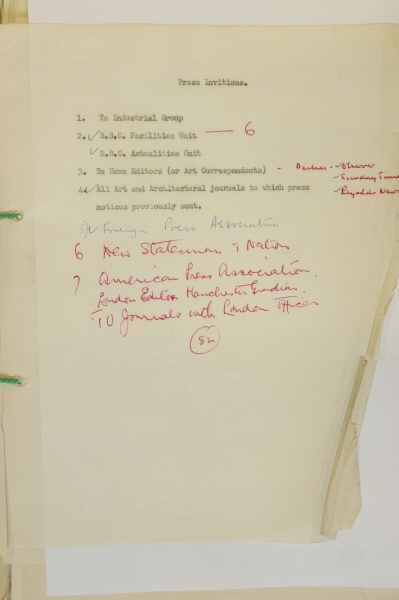 Press Invitions.
1. To Industrial Group
2. ✓ B.B.C. Facilities Unit — 6
✓ B.B.C. Actualities Unit
3. To News Editors (or Art Correspondents) - - Observer
Sunday Times
4. ✓ All Art and Architectural journals to which press Reynolds News
notices previously sent.
5) ✓ Foreign Press Association
6 New Statesman & Nation
7 American Press Association.
London Editor Manchester Guardian.
Journals with London Offices
82